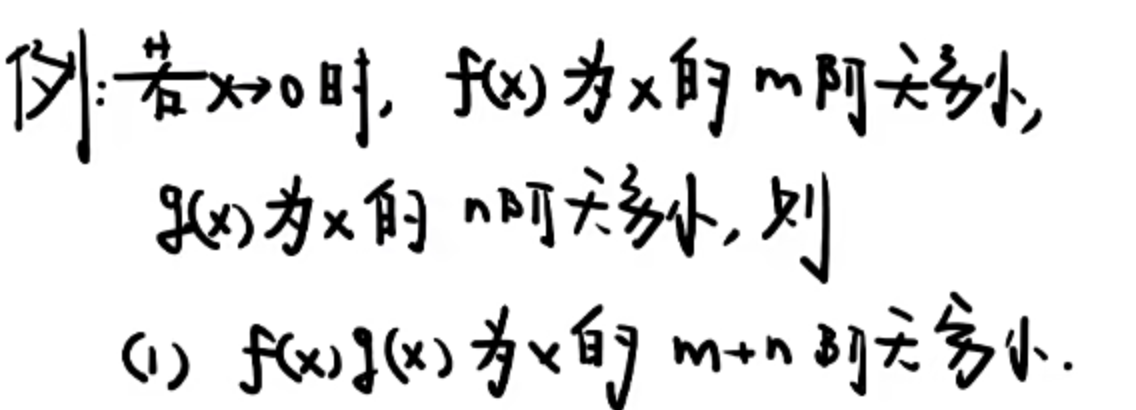 例:若x→0时, f(x)为x的m阶无穷小,
g(x)为x的n阶无穷小,则
(1) f(x)g(x)为x的m+n阶无穷小.